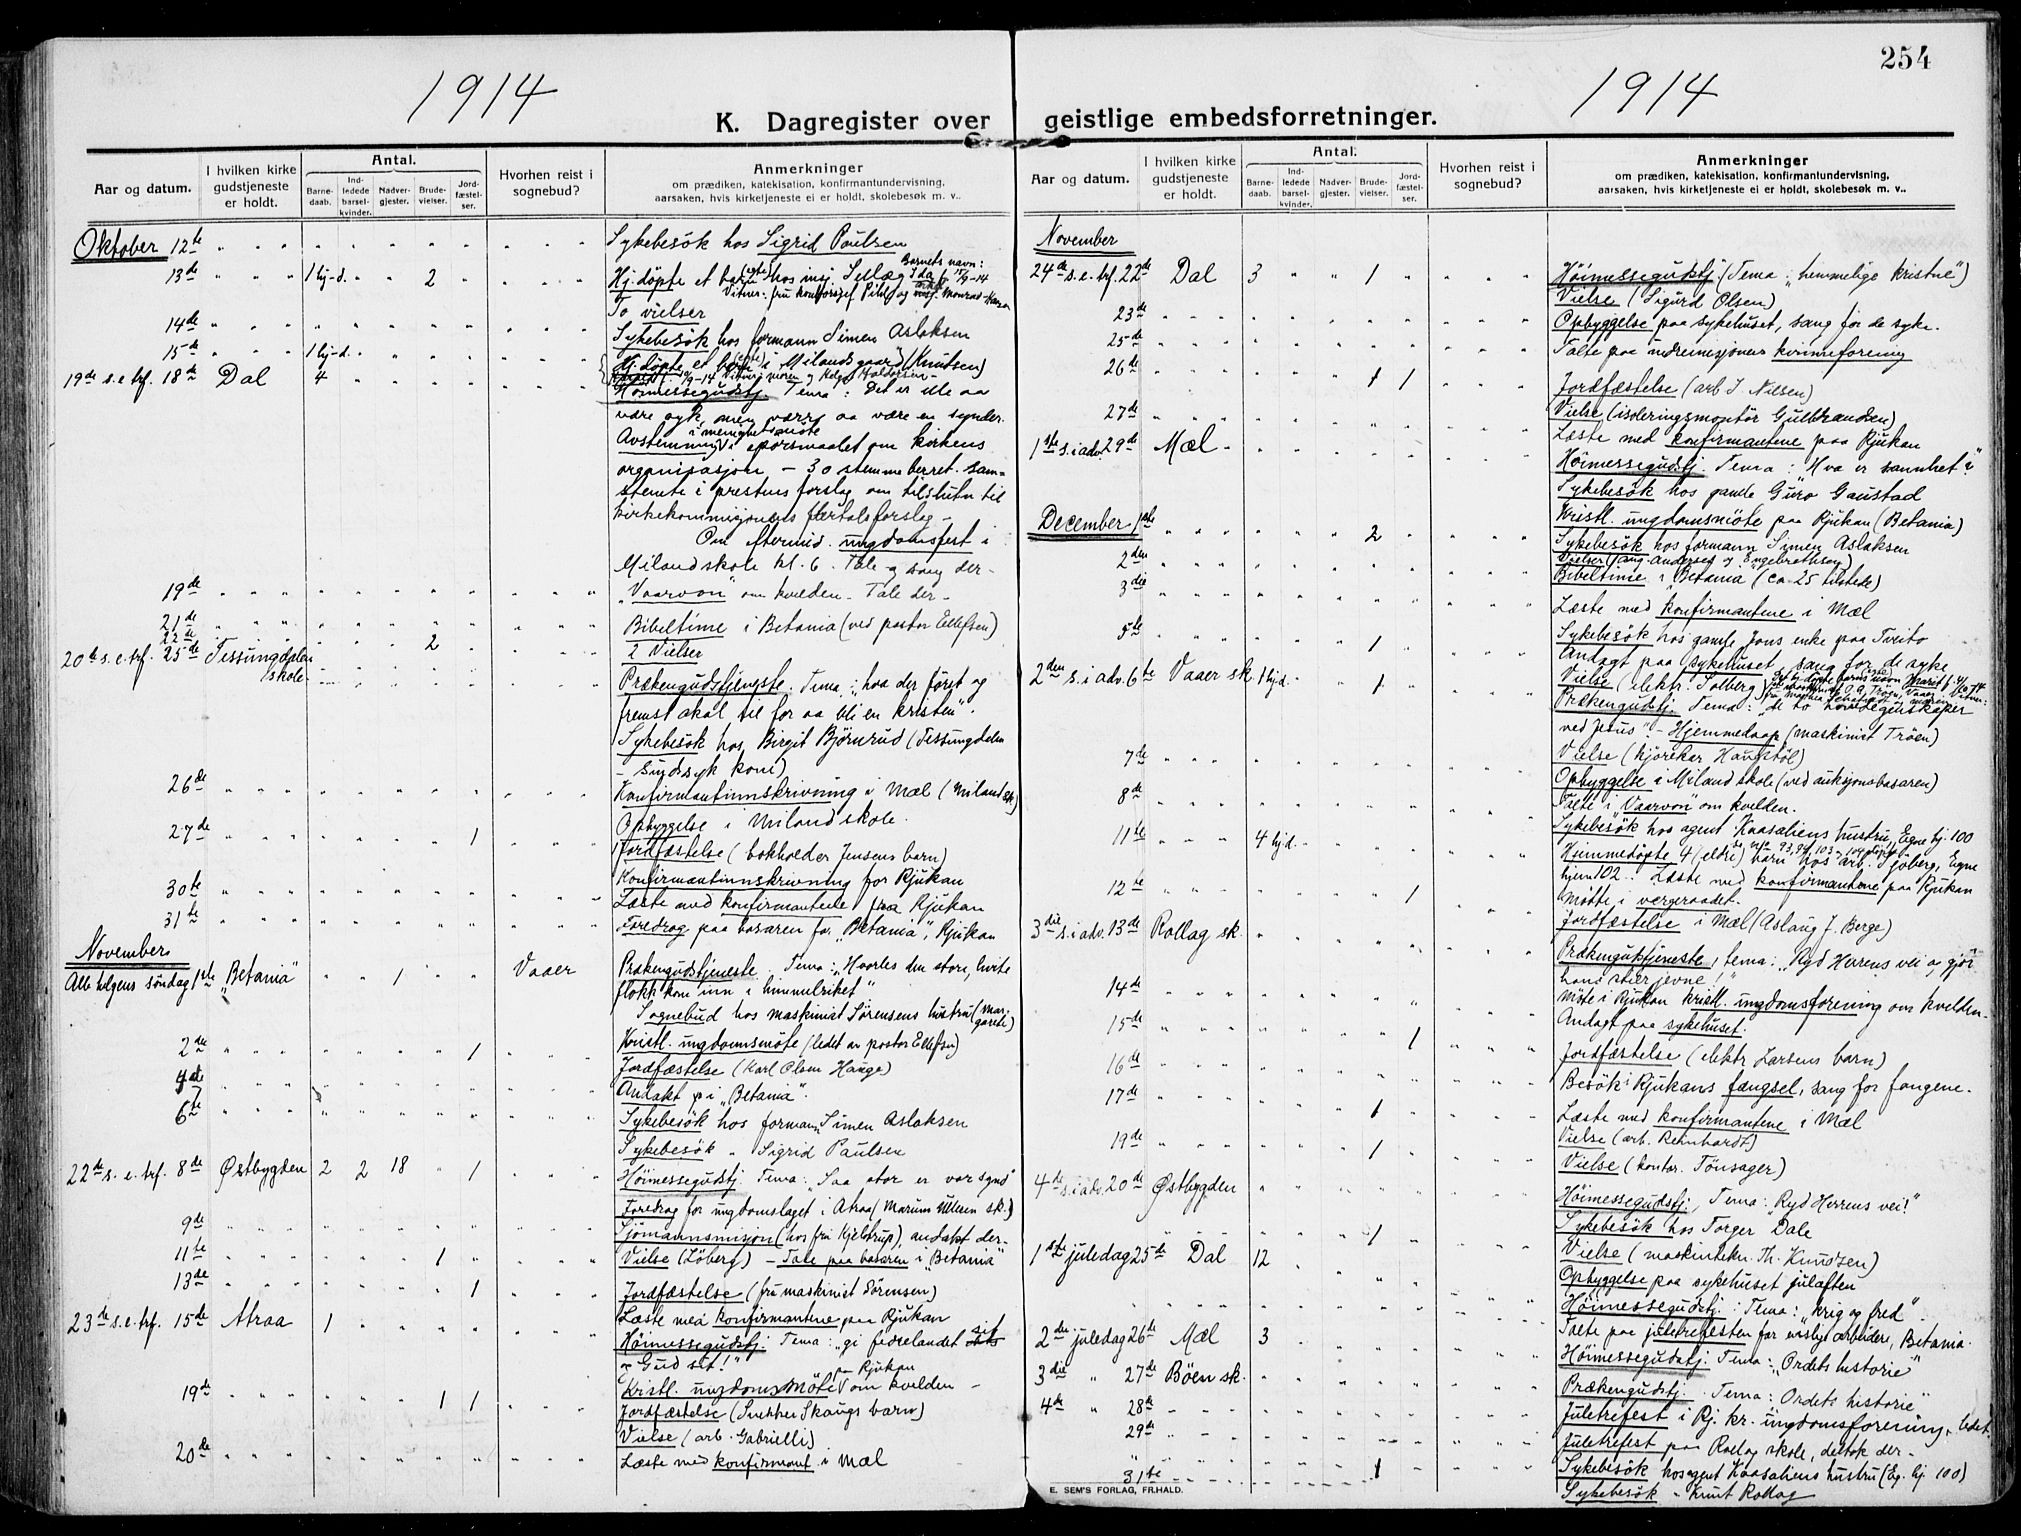 254
1914
1914
K. Dagregister over geistlige embedsforretninger.
Aar og datum.
I hvilken kirke gudstjeneste er holdt.
Antal.
Barne-daab.
Ind-ledede barsel-kvinder.
Nadver-gjester.
Brude-vielser.
Jord-fæstel-ser.
Hvorhen reist i sognebud?
Anmerkninger
om prædiken, katekisation, konfirmantundervisning,
aarsaken, hvis kirketjeneste ei er holdt, skolebesøk m. v..
Oktober 12te Sykebesök hos Sigrid Paulsen
Barnets navn:
13de 1 hj-d. 2 Hj. döpte et barn hos insj. Selläg Ida f. 17/9-14
To vielser
14de Sykebesök hos formann Simen Aslaksen
15de 1 hj-d. Hj. döpte et barn i Milandsgaard (Knutsen)
19de s.e.trf. 18de Dal 4 Höimessegudstj. Tema: Det er ille aa
være syk, men værre aa være en synder.
i menighetsmöte
Avstemning i spörsmaalet om kirkens
organisasjon – 30 stemmeberret. sam-
stemte i prestens forslag om tilslutn til
kirkekommisjonens flertalsforslag –
Om aftermid. ungdomsfest i
Miland skole kl. 6. Tale og sang der –
19de "Vaarvon" om kvelden – Tale der –
21de Bibeltime i Betania (ved pastor Ellefsen)
22de 2 2 Vielser
20de s.e.trf. 25de Tessungdalen skole Prækengudstjeneste. Tema: "hva der först og
fremst skal til for aa bli en kristen".
Sykebesök hos Birgit Björnrud (Tessungdalen
– sindssyk kone)
26de Konfirmantinnskrivning i Mæl (Miland sk.)
Opbyggelse i Miland skole.
27de 1 Jordfæstelse (bokholder Jensens barn)
Konfirmantinnskrivning for Rjukan
30te Læste med konfirmantene fra Rjukan
31te Foredrag paa basaren for "Betania", Rjukan
November
Alle helgens söndag 1ste "Betania" 1 Vaaer Prækengudstjeneste. Tema: "Hvorles den store, hvite
flokk kom inn i himmelriket"
Sognebud hos maskinist Sörensens hustru (Mar-
garete)
Kristl. ungdomsmöte (ledet av pastor Ellefsen)
2de 1 Jordfæstelse (Karl Olsen Hauge)
4de Andakt i "Betania".
6te Sykebesök hos formann Simen Aslaksen
Sykebesök " Sigrid Paulsen
22de s.e.trf. 8de Østbygden 2 2 18 1 Höimessegudstj. Tema: "Saa stor er vor synd"
Foredrag for ungdomslaget i Atraa (Marum Ulleren sk.)
9de Sjömannsmisjon (hos fru Kjelstrup), andakt der –
11te 1 Vielse (Löberg) – Tale paa basaren i "Betania"
13de 1 Jordfæstelse (fru maskinist Sörensen)
Læste med konfirmantene paa Rjukan
23de s.e.trf. 15de Atraa 1 Höimessegudstj. Tema: "gi fedrelandet sit
og Gud sit!"
paa Rjukan
Kristl. ungdomsmöte om kvelden –
19de 1 1 Jordfæstelse (Snekker Skaugs barn)
Vielse (arb. Gabrielli)
20de Læste med konfirmant i Mæl
Aar og datum.
I hvilken kirke gudstjeneste er holdt.
Antal.
Barne-daab.
Ind-ledede barsel-kvinder.
Nadver-gjester.
Brude-vielser.
Jord-fæstel-ser.
Hvorhen reist i sognebud?
Anmerkninger
om prædiken, katekisation, konfirmantundervisning,
aarsaken, hvis kirketjeneste ei er holdt, skolebesøk m. v..
November
24de s.e.trf. 22de Dal 3 1 Höimessegudstj. (Tema: "hemmelige kristne")
Vielse (Sigurd Olsen)
23de Opbyggelse paa sykehuset, sang for de syke.
25de Talte paa indremisjonens kvinneforening
26de 1 1 Jordfæstelse (arb. J. Nilsen)
Vielse (isoleringsmontör Gulbrandsen)
27de Læste med konfirmantene paa Rjukan
1ste s.i adv. 29de Mæl Höimessegudstj. Tema: "Hva er sannhet?"
Sykebesök hos gamle Guro Gaustad
Kristl. ungdomsmöte paa Rjukan (Betania)
December 1ste 2 Sykebesök hos formann Simen Aslaksen
2den Bibeltime i "Betania" (ca 25 tilstede)
3die Læste med konfirmantene i Mæl
Sykebesök hos gamle Jons enke paa Tveito
5te 1 Andagt paa sykehuset, sang for de syke
2den s.i adv. 6te Vaaer sk. 1 hj.d. 1 Vielse (elektr. Solberg)
Prækengudstj. Tema: "de to egenskaper
ved Jesus" – Hjemmedaap (maskinist Tröen)
7de Vielse (kjörekar Haukstöl)
Opbyggelse i Miland skole (ved auksjonsbasaren)
8de Talte i "Vaarvon" om kvelden.
Sykebesök hos agent Kaasaliens hustru, Egne hj. 100
11te 4 hj.d. Hjemmedöpte 4 (eldre) barn hos arb. Sjöberg, Egne
hjem 102. Læste med konfirmantene paa Rjukan
12te 1 Mötte i vergeraadet.
Jordfæstelse i Mæl (Aslaug J. Berge)
3die s.i adv. 13de Rollag sk. Prækengudstjeneste, tema: "Ryd Herrens vei og gjör
hans stier jevne!"
14de Möte i Rjukan kristl. ungdomsforening om kvelden.
Andagt paa sykehuset.
15de 1 Jordfæstelse (elektr. Larsens barn)
16de Besök i Rjukans fængsel, sang for fangene.
17de 1 Læste med konfirmantene i Mæl
Vielse (arb. Rehnhardt)
19de 1 Vielse (kontor. Tönsager)
4de s.i adv. 20de Østbygden Höimessegudstj., Tema: "Ryd Herrens vei!"
Sykebesök hos Torger Dale
1 Vielse (maskintekn. Th. Knudsen)
1ste juledag 25de Dal 12 Opbyggelse paa sykehuset julaften
Höimessegudstj.: Tema: "krig og fred"
Talte paa juletrefesten for enslige arbeidere, Betania
2den juledag 26de Mæl 3 Höimessegudstj. Tema: "Ordets historie"
3die " 27de Böen sk. Prækengudstj. Tema: "Ordets historie"
4de " 28de Juletrefest i Rj. kr. ungdomsforening, ledet
29de Juletrefest paa Rollag skole, deltok der –
31te 1 Sykebesök hos agent Kaasaliens hustru (Eg. hj. 100)
Sykebesök " Knut Rollag
E. SEM'S FORLAG, FR.HALD.